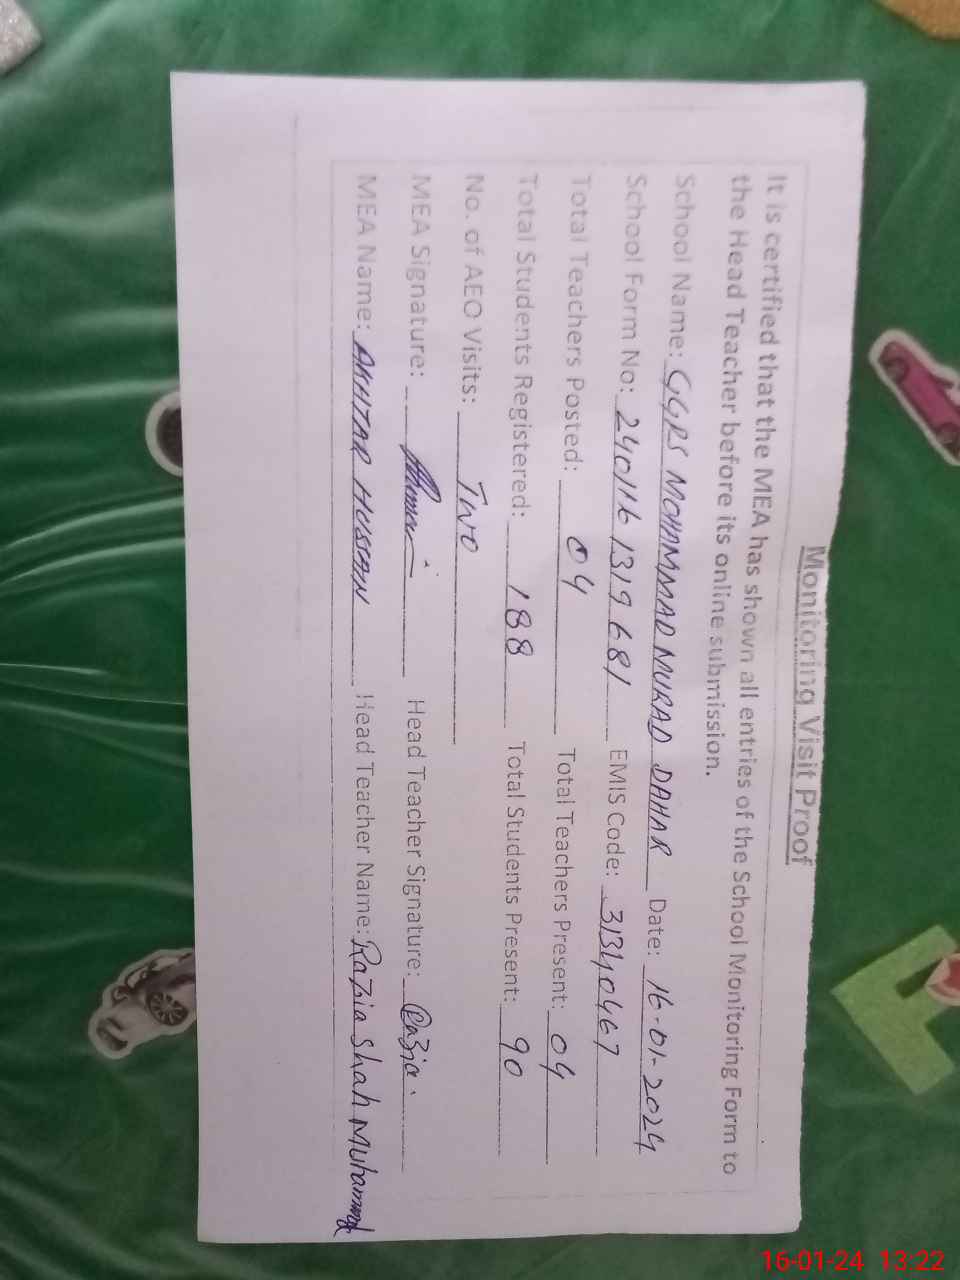 Monitoring Visit Proof
It is certified that the MEA has shown all entries of the School Monitoring Form to
the Head Teacher before its online submission.
School Name: GGPS MOHAMMAD MURAD DAHAR Date: 16-01-2024
School Form No: 240116 1319 681 EMIS Code: 31340467
Total Teachers Posted: 04 Total Teachers Present: 04
Total Students Registered: 188 Total Students Present: 90
No. of AEO Visits: Two
MEA Signature: Head Teacher Signature: Razia
MEA Name: AKHTAR HUSSAIN Head Teacher Name: Razia Shah Muhammad
16-01-24 13:22